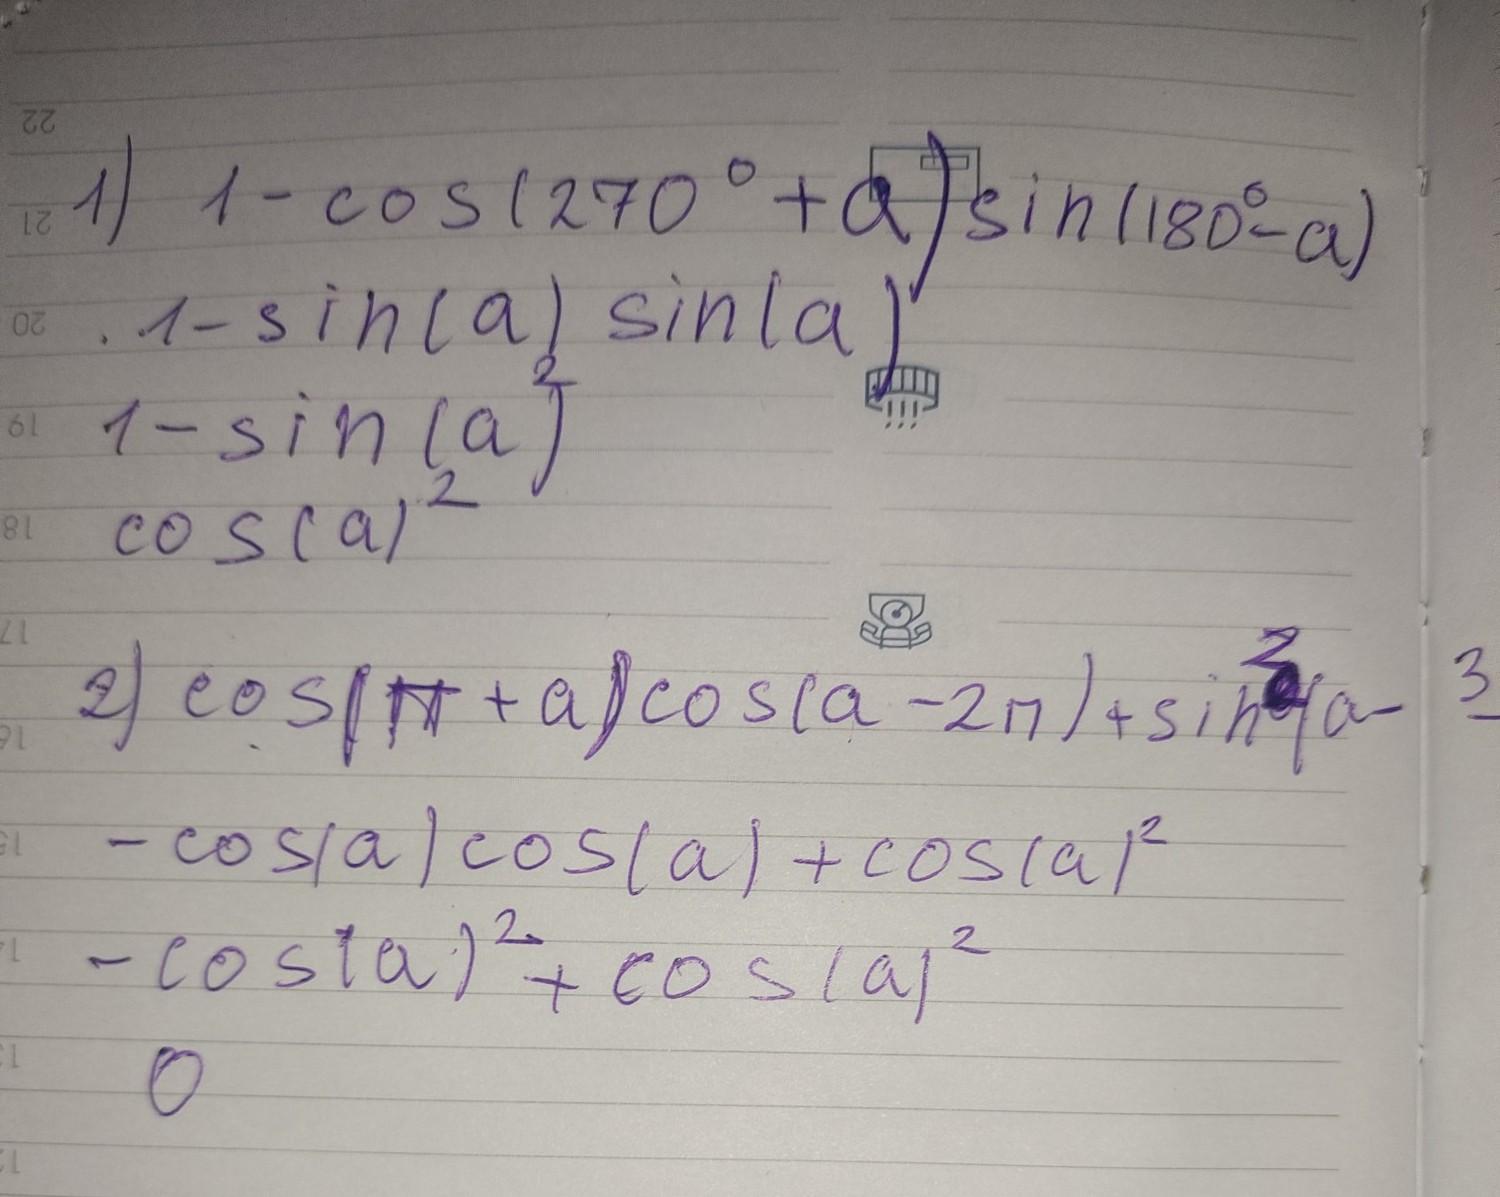 22
1) 1-cos(270°+a)sin(180°-a)
21
. 1-sin(a) sin(a)
20
1-sin(a)²
19
cos(a)²
18
17
2) cos(π+a)cos(a-2π)+sin²(a- 3
16
-cos(a)cos(a)+cos(a)²
15
-cos(a)²+cos(a)²
14
0
13
12